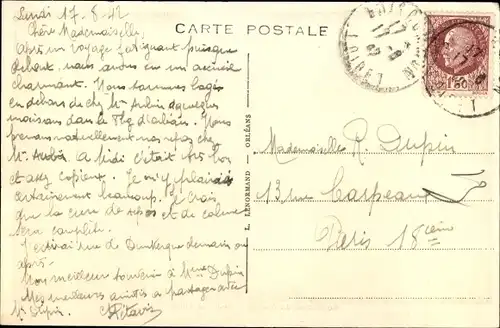 Lundi 17-8-42
Chère Mademoiselle,
Après un voyage fatigant puisque
debout, nous avons eu un accueil
charmant. Nous sommes logés
en dehors de chez Mr Aubin à quelques
maisons dans le Fbg d'Orléans. Nous
prenons naturellement nos repas chez
Mr Aubin. A midi c'était très bon
et assez copieux. Je m'y plairais
certainement beaucoup. Je crois
que la cure de repos et de calme
sera complète.
J'écrirai rue de Dunkerque demain ou
après.
Mon meilleur souvenir à Mme Dupin
Mes meilleures amitiés à partager avec
Mr Dupin.
CARTE POSTALE
L. LENORMAND - ORLÉANS
1F50
LOIRET
Mademoiselle R. Dupin
13 rue Carpeaux
Paris 18ième